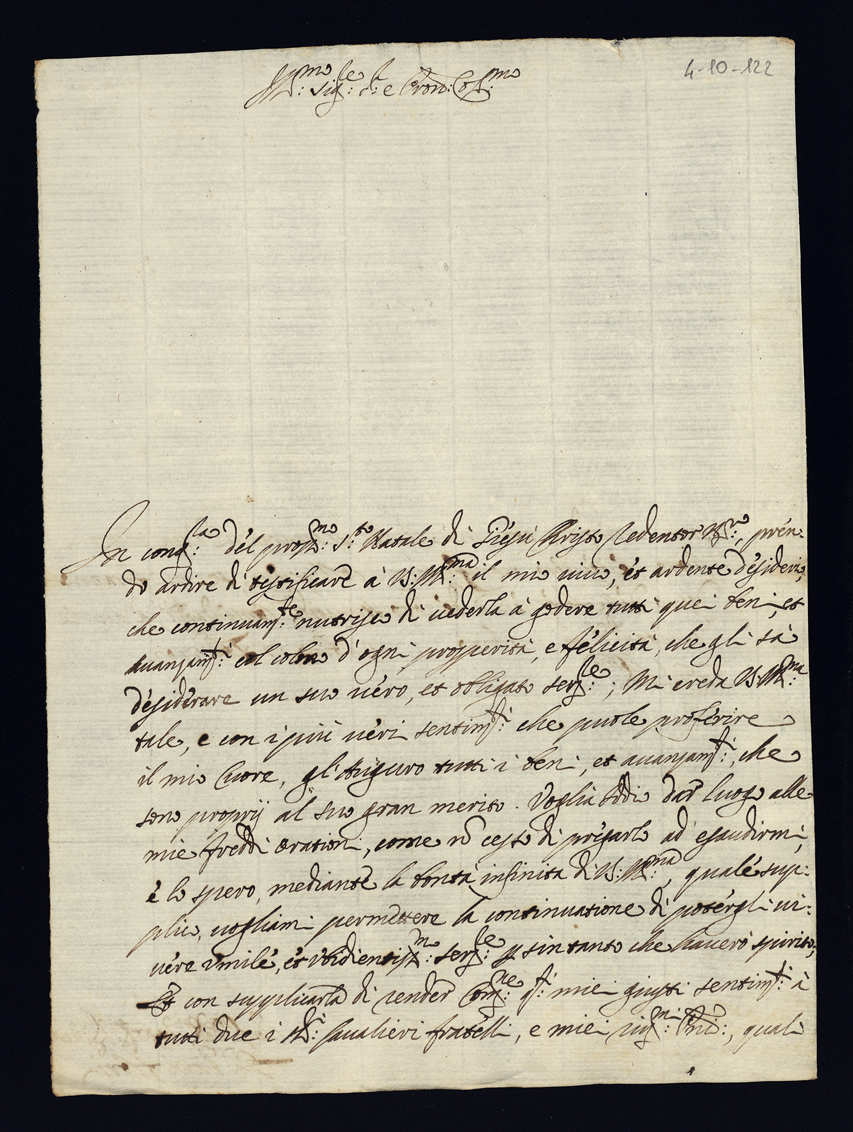 4-10-122
Ill:mo Sig:re e Pron: Col:mo
In cong:la del pross:mo S:to Natale di Giesù Christo Redentor Nro:, pren-
do ardire di testificare à V:S: Ill:ma il mio vivo, et ardente desiderio,
che continuam:te nutrisco di vederla à godere tutti quei beni, et
avanzam:ti col colmo d'ogni prosperità, e felicità, che gli sà
desiderare un suo vero, et obligato ser:le; Mi creda V:S: Ill:ma
tale, e con i più veri sentim:ti che puole proferire
il mio Cuore, gl'Auguro tutti i beni, et avanzam:ti, che
sono proprij al suo gran merito. Voglia Iddio dar luogo alle
mie fredde orationi, come nō cesso di pregarlo ad esaudirmi,
e lo spero, mediante la bontà infinita di V:S: Ill:ma, quale sup-
plico, vogliami permettere la continuatione di potergli vi-
vere umile, et obidientiss:m ser:le sin tanto che haverò spirito,
con supplicarla di render q:ti miei giusti sentim:ti à
tutti due i Cavalieri fratelli, e miei Sig:ri Pni:, quali